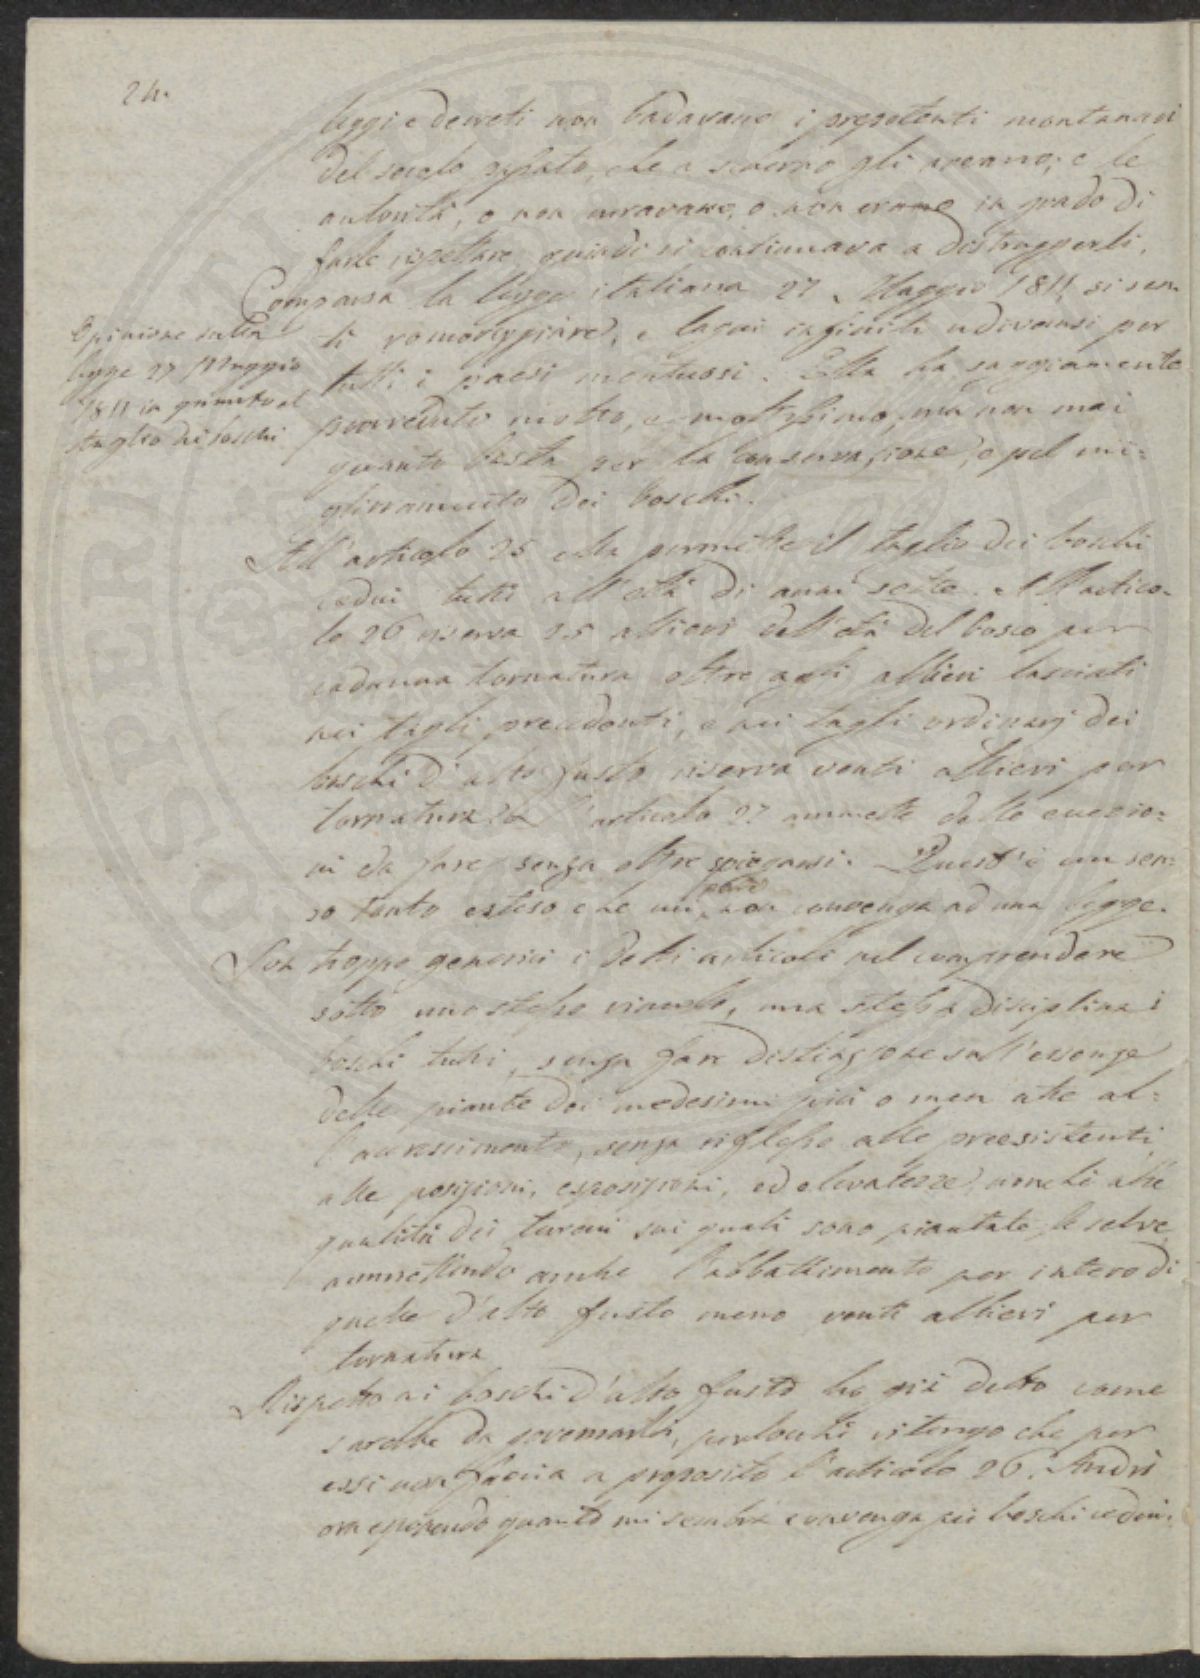 24.
leggi e decreti non badavano i prepotenti montanari
del secolo passato, che a scherno gli aveano; e le
autorità, o non curavano, o non erano in grado di
farle rispettare, quindi si continuava a distruggerli.
Comparsa la legge italiana 27 Maggio 1811 si sen-
tì romoreggiare, e lagni infiniti udivansi per
tutti i paesi montuosi. Ella ha saggiamente
provveduto molto, e moltissimo, ma non mai
quanto basta per la conservazione, e pel mi=
glioramento dei boschi.
Opinione sulla
legge 27 Maggio
1811 in quanto al
taglio dei boschi
All'articolo 25 ella permette il taglio dei boschi
cedui tutti all'età di anni sette. All'artico-
lo 26 riserva 25 allievi dell'età del bosco per
cadauna tornatura oltre agli allievi lasciati
nei tagli precedenti, e nei tagli ordinarj dei
boschi d'alto fusto riserva venti allievi per
tornatura. L'articolo 27 ammette delle eccezio=
ni da fare senza oltre spiegarsi. Quest'è un sen=
so tanto esteso che mi pare non convenga ad una legge.
Son troppo generici i detti articoli nel comprendere
sotto uno stesso vincolo, una stessa disciplina i
boschi tutti, senza fare distinzione sull'essenze
delle piante dei medesimi più o men atte al=
l'accrescimento, senza riflesso alle preesistenti,
alle posizioni, esposizioni, ed elevatezze, nonché alle
qualità dei terreni sui quali sono piantate le selve,
ammettendo anche l'abbattimento per intero di
quelle d'alto fusto meno venti allievi per
tornatura
Rispetto ai boschi d'alto fusto ho già detto come
sarebbe da governarli, perlocchè ritengo che per
essi non faccia a proposito l'articolo 26. Andrò
ora esponendo quanto mi sembra convenga pei boschi cedui.